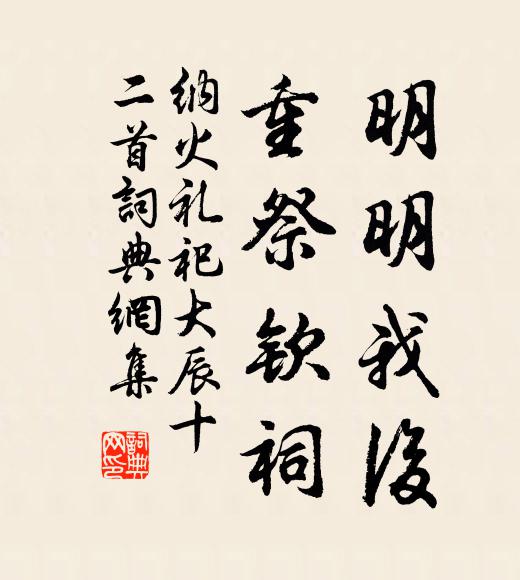 明明我後
重祭欽祠
納火礼祀大辰十
二首詞典網集
詞典
网印